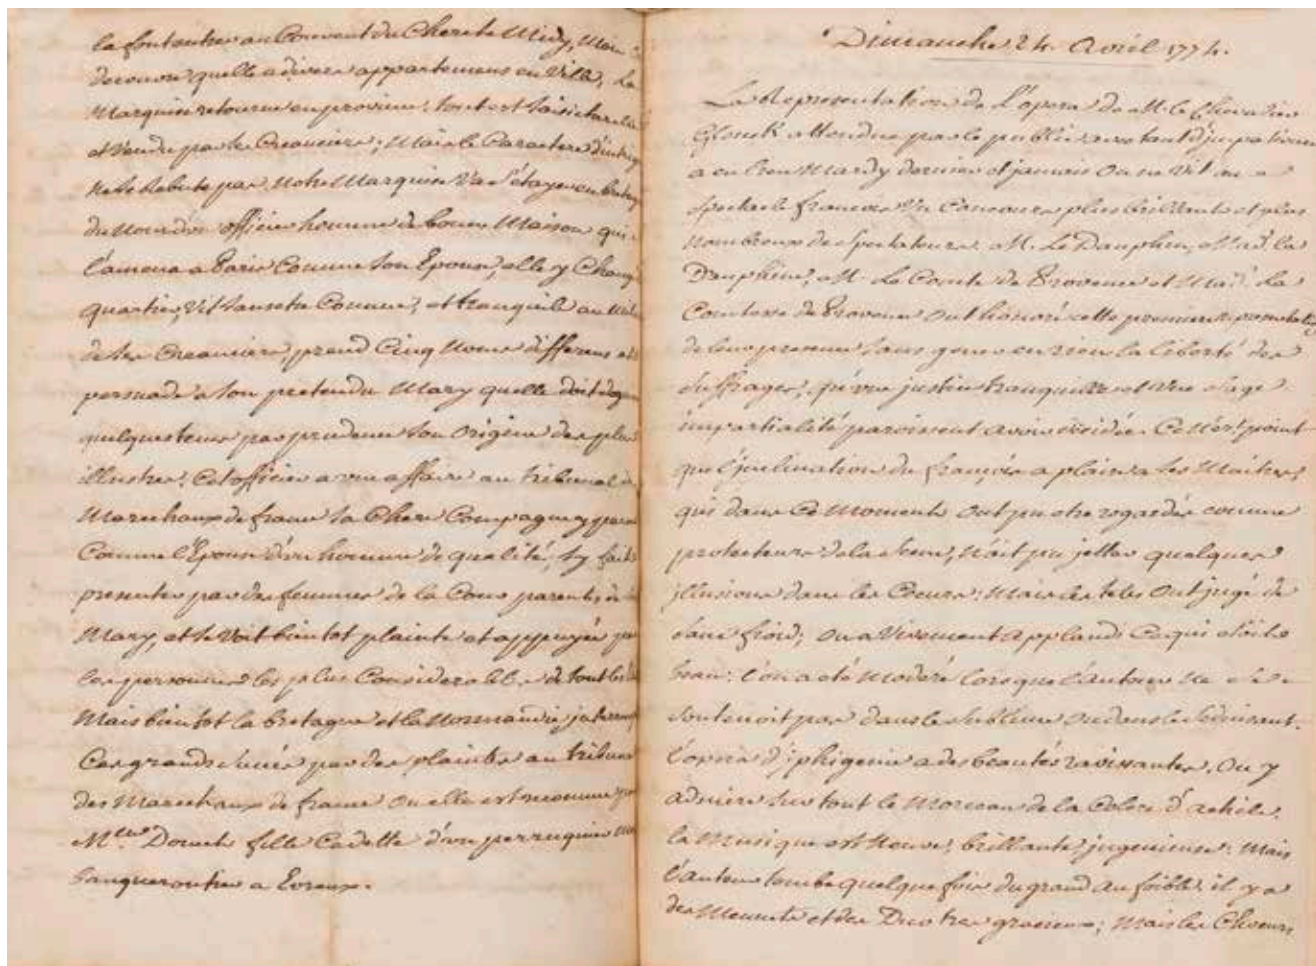 le font entrer au Couvent du Cherche Midy, Mais
decouvre quelle a divers appartemens en Ville, La
Marquise retourne en province, tout est saisi
et Vendu par les Creanciers; Mais le Caractere d'intrigue
ne se debute pas, Notre Marquise Va s'étayer en
du Nom d'un officier homme de bonne Maison qui
l'amene a Paris Comme son Epouse, elle y Change
quartier, Vit sans etre Connue, et tranquile au Milieu
de ses Creanciers, prend Cinq Noms differens et
persuade a son pretendu Mary quelle doit
quelques tems par prudence son Origine des plus
illustres, Cet officier a une affaire au tribunal des
Marechaux de france sa Chere Compagne y paroit
Comme l'Epouse d'un homme de qualité, s'y fait
presenter par des femmes de la Cour parentes de
Mary, et se Voit bientot plainte et appuyée par
les personnes les plus Considerables de tout
Mais bientot la bretagne et la Normandie
Ces grands par des plaintes au tribunal
des Marechaux de france Ou elle est reconnue pour
M.elle fille Cadette d'un perruquier
banqueroutier a Evreux.
Dimanche 24. Avril 1774.
La Representation de L'opera de M. le Chevalier
Glouck attendue par le public avec tant d'impatience
a eu lieu Mardy dernier et jamais On ne Vit au
Spectacle francois Un Concours plus brillant et plus
Nombreux de Spectateurs. M. Le Dauphin, Mad. la
Dauphine, M. Le Comte de Provence et Mad. La
Comtesse de Provence Ont honoré cette premiere representation
de leur presence sans gener en rien la liberté des
suffrages, qu'une justice tranquille et Une Sage
impartialité paroissent avoir décidée. Ce n'est point
que l'inclination du françois a plaire a ses Maitres,
qui dans Ce Moment Ont pu etre regardés comme
protecteurs de la Scene, N'ait pu jetter quelques
illusions dans les Coeurs: Mais les tetes Ont jugé de
sang froid; On a Vivement Applaudi Ce qui etoit
beau: l'on a été Modéré lorsque l'auteur Ne se
soutenoit pas dans le Sublime Ou dans le Seduisant.
l'opera d'iphigenie a des beautés ravissantes, On y
admire sur tout le Morceau de la Colere d'achile.
la Musique est Neuve, brillante, ingenieuse: Mais
l'auteur tombe quelque fois du grand Au foible. il y a
des Menuets et des Duo tres gracieux; Mais les Choeurs